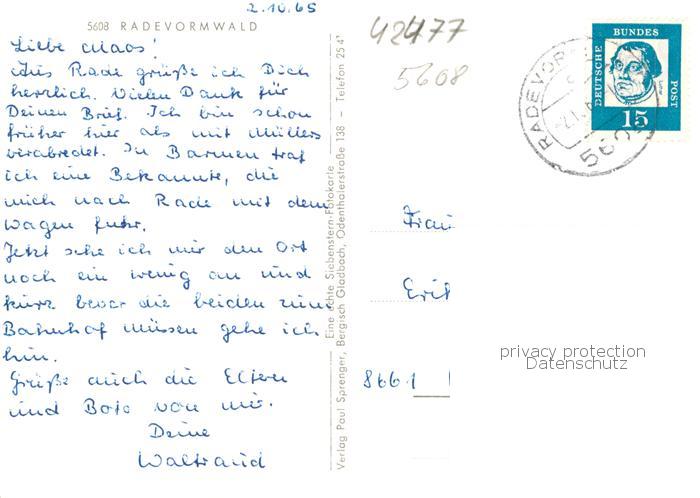 2.10.65
5608 RADEVORMWALD
Liebe
Aus Rade grüße ich Dich
herzlich. Vielen Dank für
Deinen Brief. Ich bin schon
früher hier als mit Müllers
verabredet. In Barmen traf
ich eine Bekannte, die
mich nach Rade mit dem
Wagen fuhr.
Jetzt sehe ich mir den Ort
noch ein wenig an und
kurz bevor die beiden zum
Bahnhof müssen gehe ich
hin.
Grüße auch die Eltern
und von mir.
Deine
Waltraud
Eine echte Siebenstern-Fotokarte
Verlag Paul Sprenger, Bergisch Gladbach, Odenthalerstraße 138 – Telefon 25 4
42477
5608
DEUTSCHE BUNDES POST
15
RADEVOR
560
Frau
Erik
8661
privacy protection
Datenschutz